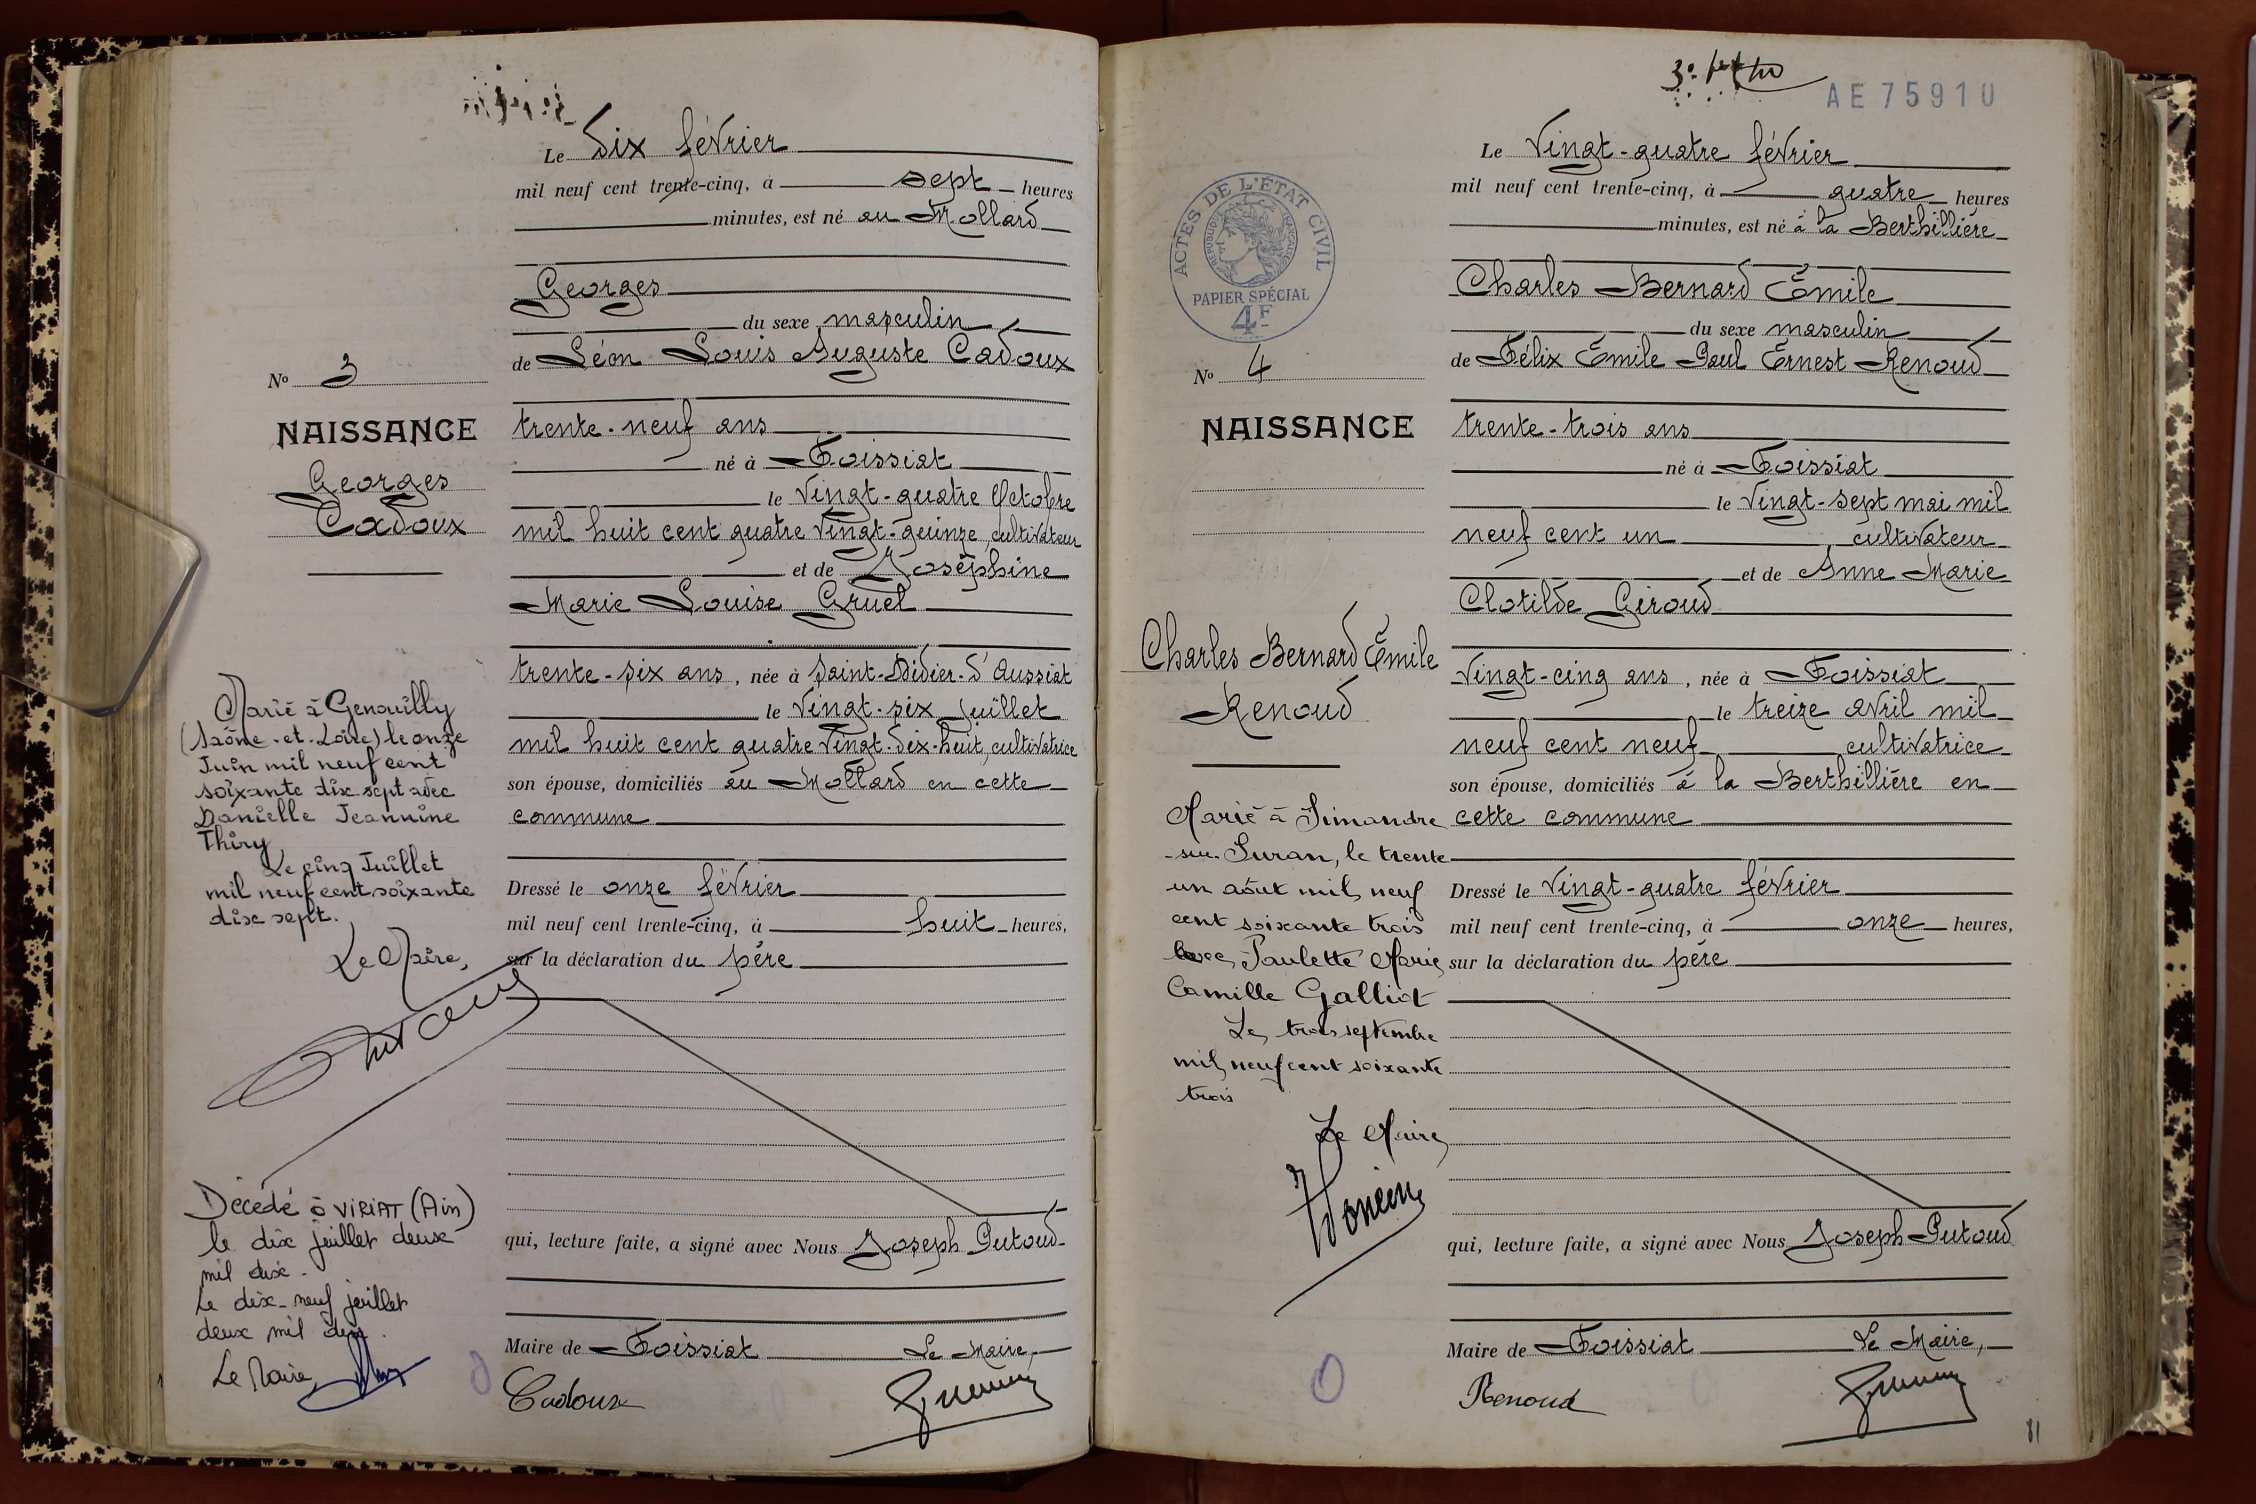 Le dix février
mil neuf cent trente-cinq, à sept heures
minutes, est né au Mollard
Georges
du sexe masculin
de Léon Louis Auguste Cadoux
trente-neuf ans
né à Foissiat
le vingt-quatre Octobre
mil huit cent quatre vingt-quinze, cultivateur
et de Joséphine
Marie Louise Gruel
trente-six ans, née à Saint-Didier-d'Aussiat
le vingt-six Juillet
mil huit cent quatre vingt-dix-huit, cultivatrice
son épouse, domiciliés au Mollard en cette
commune
Dressé le onze février
mil neuf cent trente-cinq, à huit heures,
sur la déclaration du père
qui, lecture faite, a signé avec Nous Joseph Putoud
Maire de Foissiat Le Maire,
Cadoux
No 3
NAISSANCE
Georges
Cadoux
Marié à Genouilly
(Saône-et-Loire) le onze
Juin mil neuf cent
soixante dix sept avec
Danielle Jeannine
Thiry
Le cinq Juillet
mil neuf cent soixante
dix sept.
Le Maire,
Décédé à VIRIAT (Ain)
le dix juillet deux
mil dix.
Le dix-neuf juillet
deux mil dix.
Le Maire,
AE75910
Le vingt-quatre février
mil neuf cent trente-cinq, à quatre heures
minutes, est né à la Berthillière
Charles Bernard Émile
du sexe masculin
de Félix Émile Paul Ernest Renoud
trente-trois ans
né à Foissiat
le vingt-sept mai mil
neuf cent un cultivateur
et de Anne Marie
Clotilde Giroud
vingt-cinq ans, née à Foissiat
le treize avril mil
neuf cent neuf cultivatrice
son épouse, domiciliés à la Berthillière en
cette commune
Dressé le vingt-quatre février
mil neuf cent trente-cinq, à onze heures,
sur la déclaration du père
qui, lecture faite, a signé avec Nous Joseph Putoud
Maire de Foissiat Le Maire,
Renoud
ACTES DE L'ÉTAT CIVIL
RÉPUBLIQUE FRANÇAISE
PAPIER SPÉCIAL
4F
No 4
NAISSANCE
Charles Bernard Émile
Renoud
Marié à Simandre
-sur-Suran, le trente
un août mil neuf
cent soixante trois
avec Paulette Marie
Camille Galliot
Le trois septembre
mil neuf cent soixante
trois
Le Maire
81